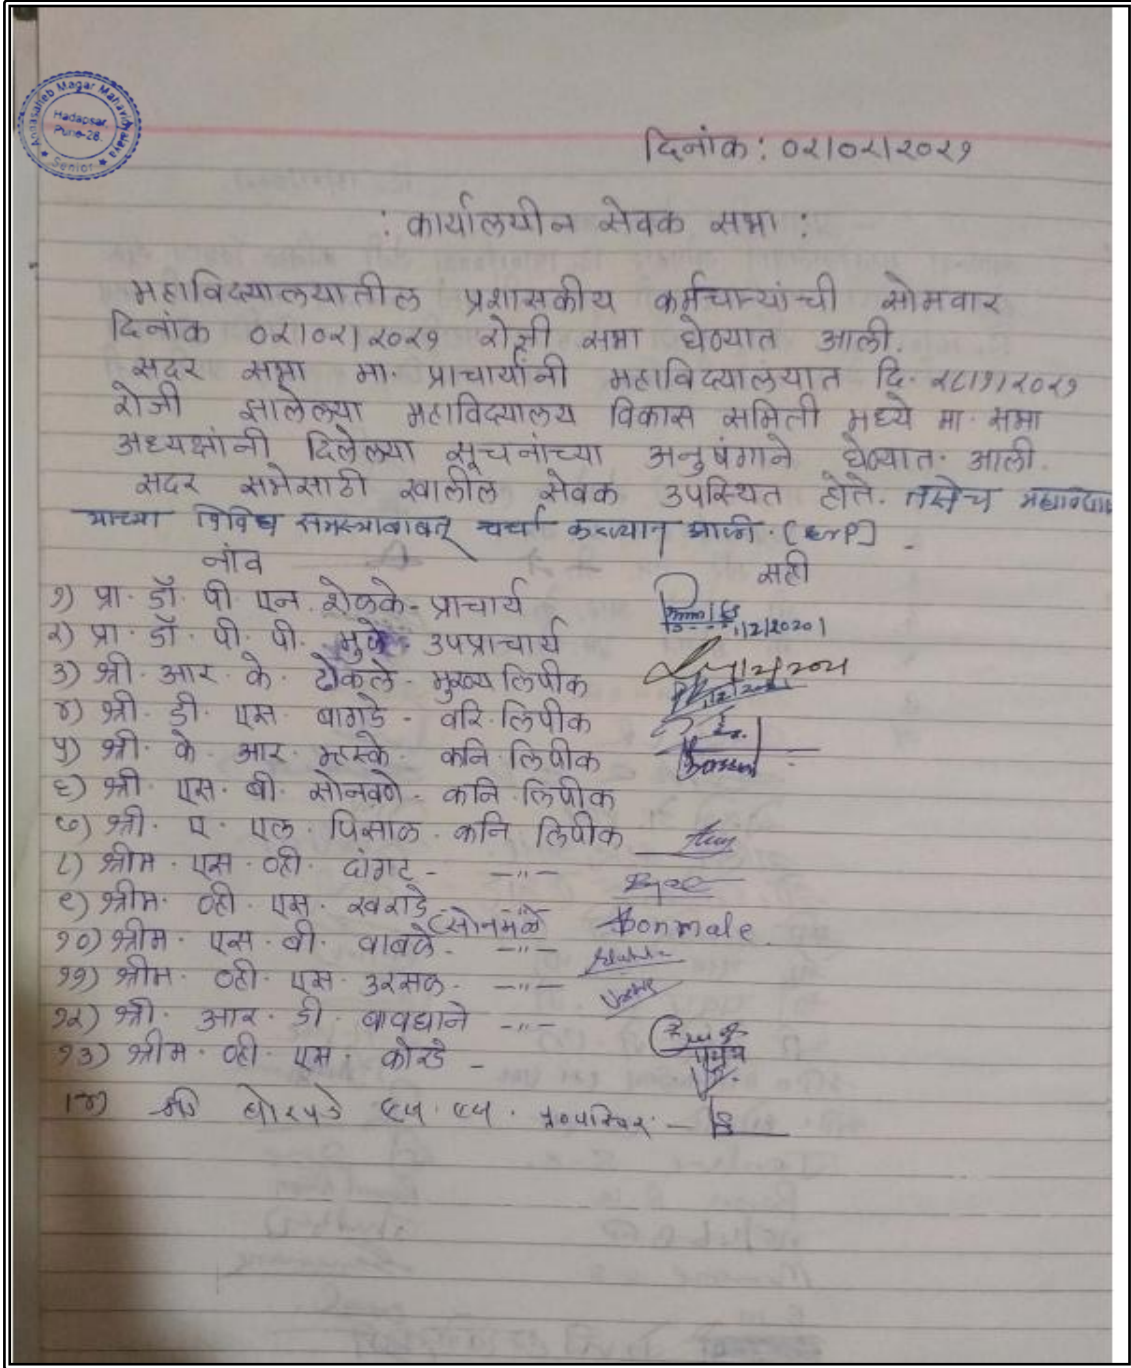 Annasaheb Magar Mahavidyalaya
Hadapsar,
Pune-28.
★ Senior ★
दिनांक: ०२/०२/२०२१
: कार्यालयीन सेवक सभा :
महाविद्यालयातील प्रशासकीय कर्मचाऱ्यांची सोमवार
दिनांक ०२/०२/२०२१ रोजी सभा घेण्यात आली.
सदर सभा मा. प्राचार्यांनी महाविद्यालयात दि. २८/१/२०२१
रोजी झालेल्या महाविद्यालय विकास समिती मध्ये मा. सभा
अध्यक्षांनी दिलेल्या सूचनांच्या अनुषंगाने घेण्यात. आली.
सदर सभेसाठी खालील सेवक उपस्थित होते. तसेच
विविध समस्याबाबत चर्चा करण्यात आली.
नांव सही
१) प्रा. डॉ. पी. एन. शेळके - प्राचार्य
२) प्रा. डॉ. पी. पी. उपप्राचार्य
३) श्री. आर. के. टोकले - मुख्य लिपीक
४) श्री. डी. एस. बागडे - वरि. लिपीक
५) श्री. के. आर. म्हस्के - कनि. लिपीक
६) श्री. एस. बी. सोनवणे - कनि. लिपीक
७) श्री. ए. एल. पिसाळ - कनि. लिपीक
८) श्रीम. एस. व्ही. दांगट - -"-
९) श्रीम. व्ही. एस. खराडे (सोनमळे) -"- Sonmale
१०) श्रीम. एस. बी. वाबळे - -"-
११) श्रीम. व्ही. एस. उरसळ - -"-
१२) श्री. आर. डी. वावधाने -"-
१३) श्रीम. व्ही. एस. कोरडे -
१४) श्री घोरपडे एस. एस.